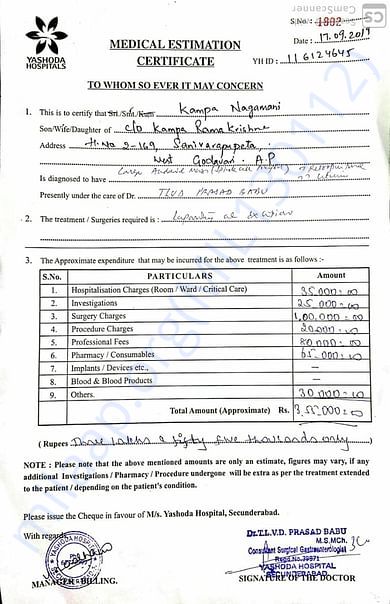 CS CamScanner
S.No.: 1802
YASHODA
HOSPITALS
MEDICAL ESTIMATION
CERTIFICATE
Date : 17.09.2019
YH ID : 116124645
TO WHOM SO EVER IT MAY CONCERN
1. This is to certify that Sri./Smt./Kum. Kampa Nagamani
Son/Wife/Daughter of C/o Kampa Rama Krishna
Address H.No 2-169, Sanivarapupeta,
West Godavari A.P
Is diagnosed to have
Presently under the care of Dr. TLVD PRASAD BABU
2. The treatment / Surgeries required is :
3. The Approximate expenditure that may be incurred for the above treatment is as follows :-
S.No. PARTICULARS Amount
1. Hospitalisation Charges (Room / Ward / Critical Care) 35,000=00
2. Investigations 25,000=00
3. Surgery Charges 1,00,000=00
4. Procedure Charges 20,000=00
5. Professional Fees 80,000=00
6. Pharmacy / Consumables 65,000=00
7. Implants / Devices etc., —
8. Blood & Blood Products —
9. Others. 30,000=00
Total Amount (Approximate) Rs. 3,55,000=00
( Rupees Three lakhs & fifty five thousands only )
NOTE : Please note that the above mentioned amounts are only an estimate, figures may vary, if any
additional Investigations / Pharmacy / Procedure undergone will be extra as per the treatment extended
to the patient / depending on the patient's condition.
Please issue the Cheque in favour of M/s. Yashoda Hospital, Secunderabad.
With regards,
Dr.T.L.V.D. PRASAD BABU
M.S,MCh.
Consultant Surgical Gastroenterologist
Regd.No.39871
YASHODA HOSPITAL
SECUNDERABAD
MANAGER-BILLING.
SIGNATURE OF THE DOCTOR